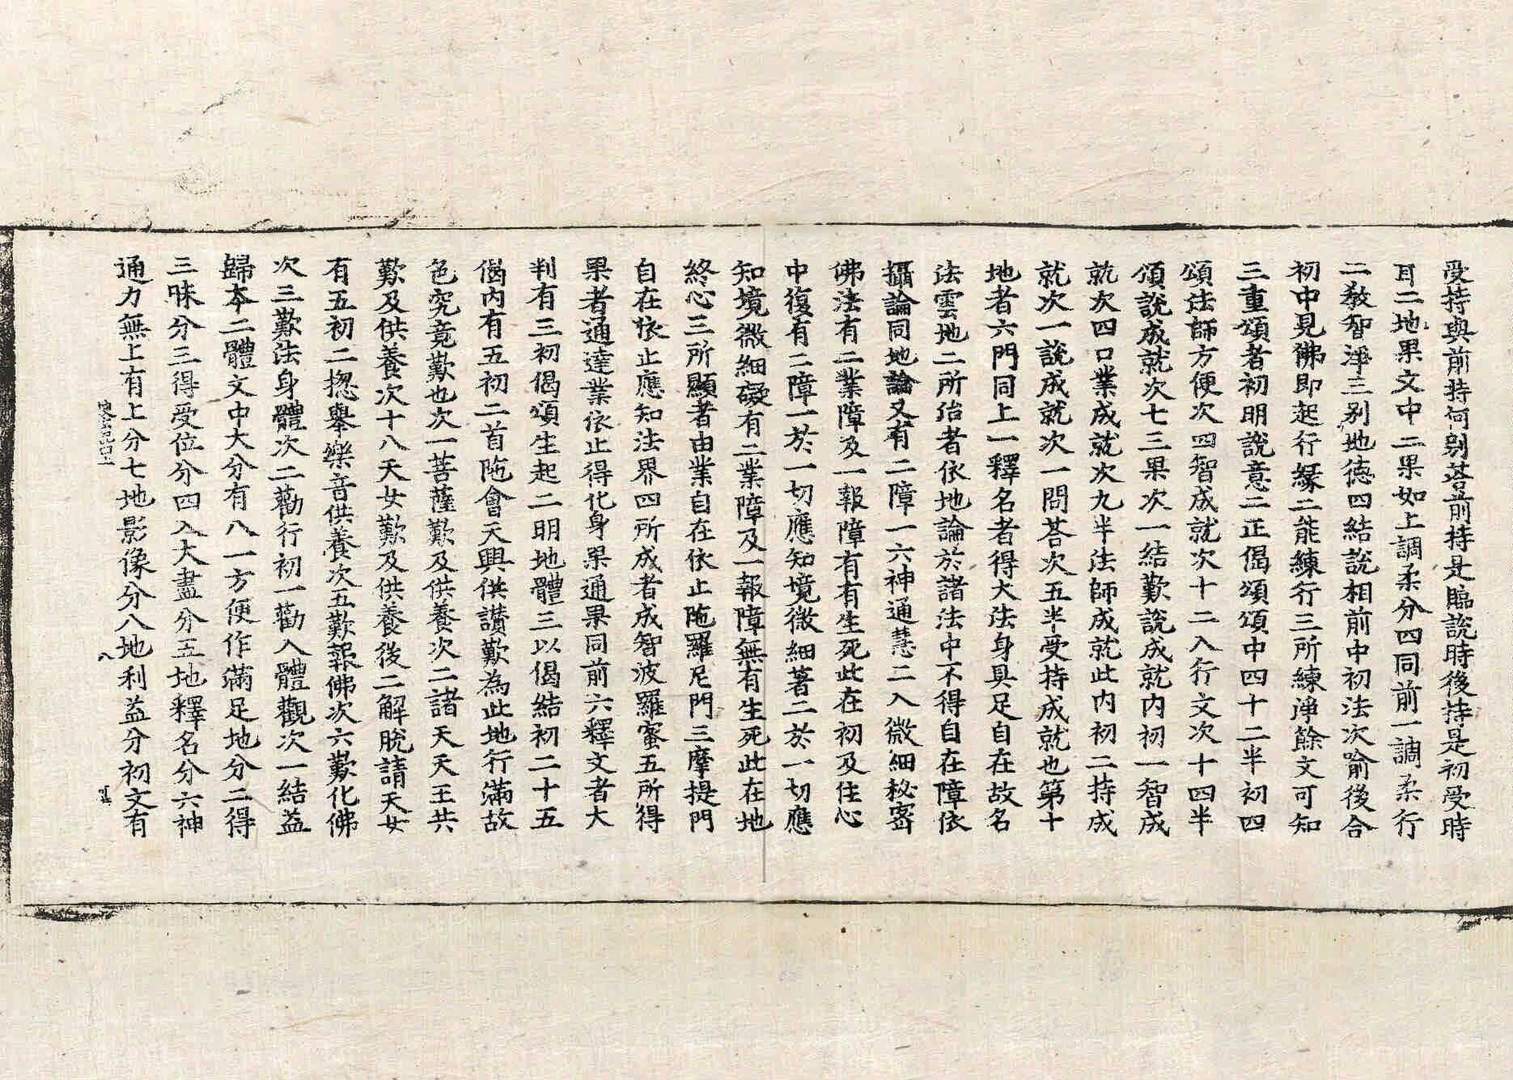 受持與前持何别荅前持是臨說時後持是初受時
耳二地果文中二果如上調柔分四同前一調柔行
二教智淨三别地德四結說相前中初法次喻後合
初中見佛即起行縁二能練行三所練淨餘文可知
三重頌者初明說意二正偈頌頌中四十二半初四
頌法師方便次四智成就次十二入行文次十四半
頌說成就次七三果次一結歎說成就内初一智成
就次四口業成就次九半法師成就此内初二持成
就次一說成就次一問荅次五半受持成就也第十
地者六門同上一釋名者得大法身具足自在故名
法雲地二所治者依地論於諸法中不得自在障依
攝論同地論又有二障一六神通慧二入微細秘密
佛法有二業障及一報障有有生死此在初及住心
中復有二障一於一切應知境微細著二於一切應
知境微細礙有二業障及一報障無有生死此在地
終心三所顯者由業自在依止陁羅尼門三摩提門
自在依止應知法界四所成者成智波羅蜜五所得
果者通達業依止得化身果通果同前六釋文者大
判有三初偈頌生起二明地體三以偈結初二十五
偈内有五初二首陁會天興供讃歎為此地行滿故
色究竟歎也次一菩薩歎及供養次二諸天天王共
歎及供養次十八天女歎及供養後二解脫請天女
有五初二惣舉樂音供養次五歎報佛次六歎化佛
次三歎法身體次二勸行初一勸入體觀次一結益
歸本二體文中大分有八一方便作滿足地分二得
三昧分三得受位分四入大盡分五地釋名分六神
通力無上有上分七地影像分八地利益分初文有
八